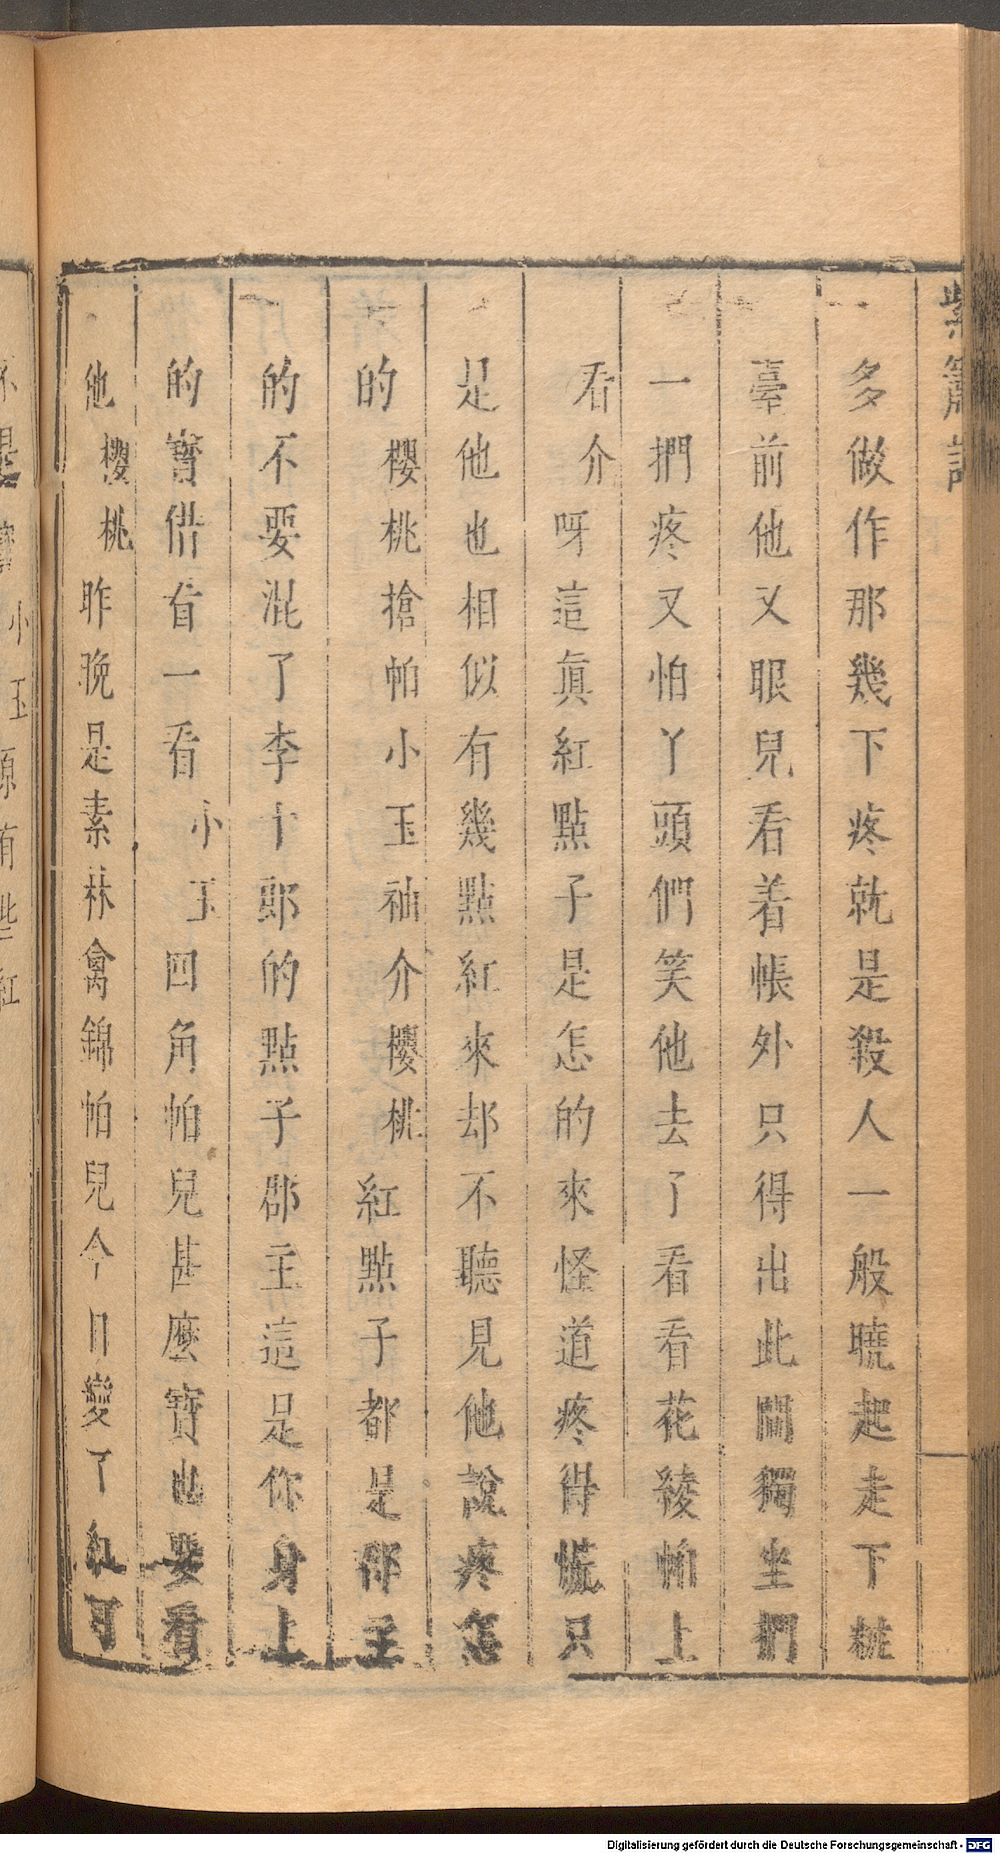 紫簫記
多做作那幾下疼就是殺人一般曉起走下粧
臺前他又眼兒看着帳外只得出此閣獨坐捫
一捫疼又怕丫頭們笑他去了看看花綾帕上
看介呀這眞紅點子是怎的來怪道疼得慌只
是他也相似有幾點紅來却不聽見他說疼怎
的櫻桃搶帕小玉袖介櫻桃紅點子都是郡主
的不要混了李十郎的點子郡主這是你身上
的寶借看一看小玉四角帕兒甚麽寶也要看
他櫻桃昨晚是素林禽錦帕兒今日變了紅可
小玉原有些紅
Digitalisierung gefördert durch die Deutsche Forschungsgemeinschaft - DFG